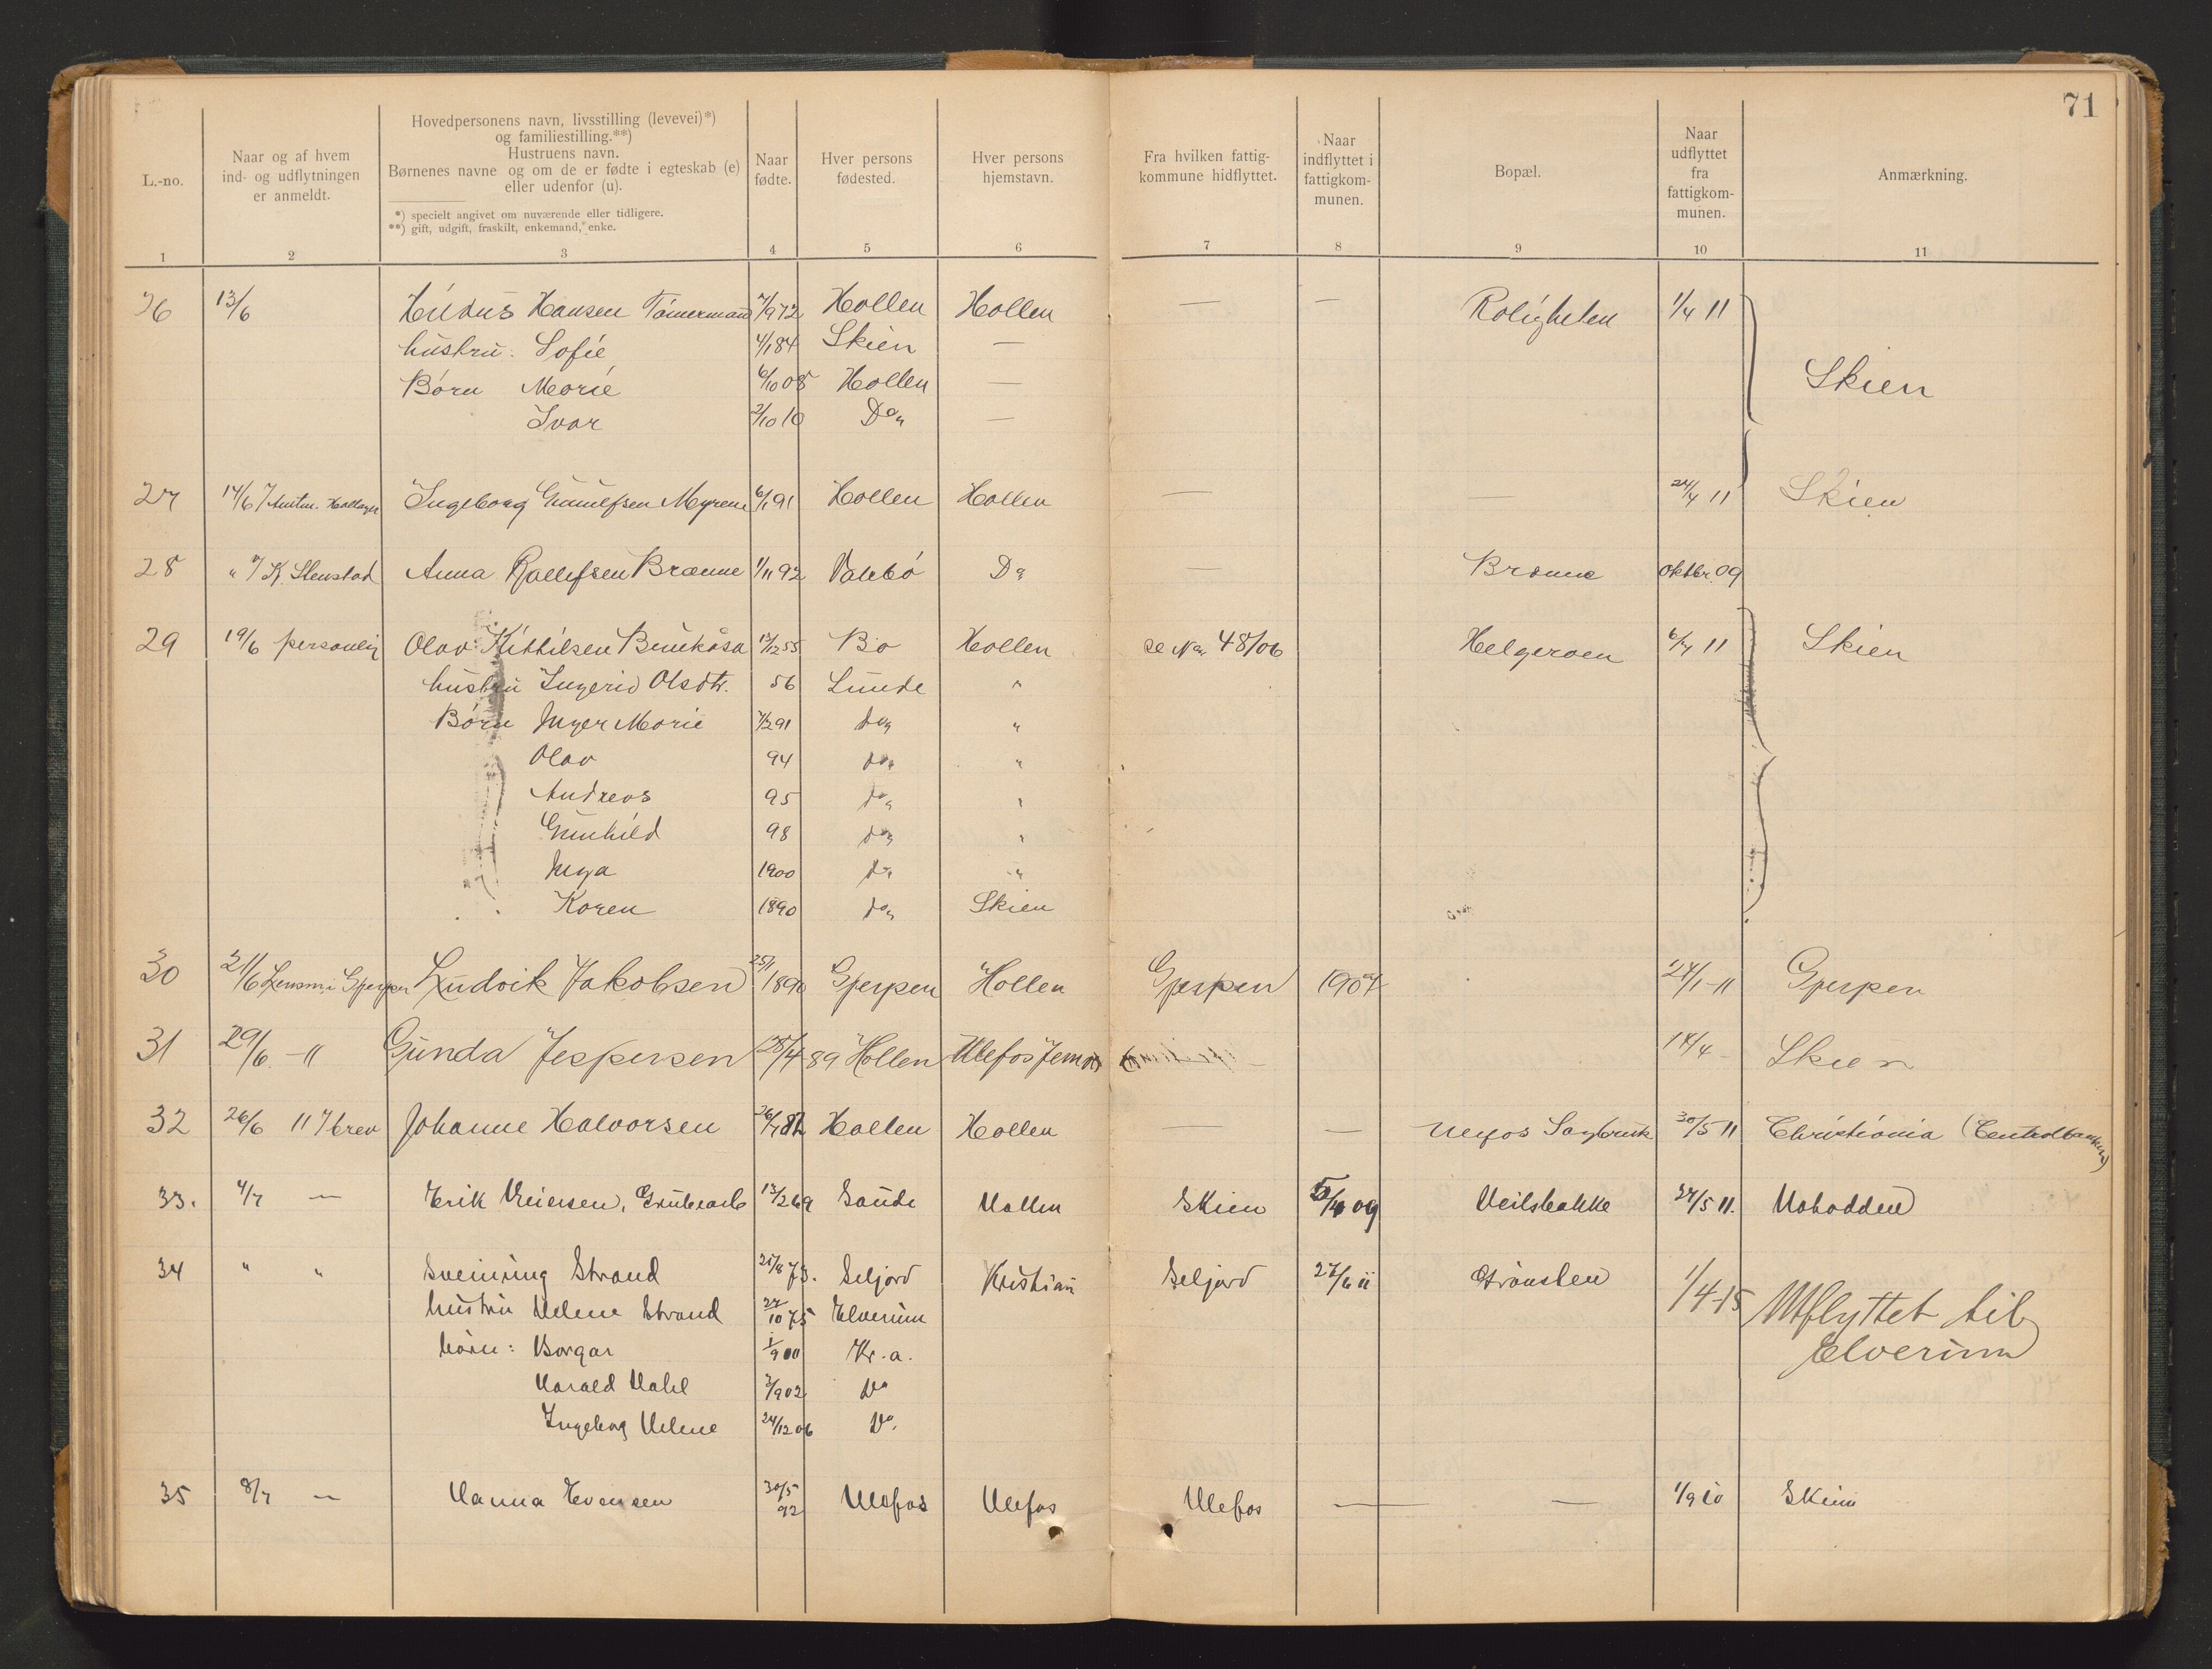 71
L.-no.
Naar og af hvem
ind- og udflytningen
er anmeldt.
Hovedpersonens navn, livsstilling (levevei)*)
og familiestilling.**)
Hustruens navn.
Børnenes navne og om de er fødte i egteskab (e)
eller udenfor (u).
*) specielt angivet om nuværende eller tidligere.
**) gift, udgift, fraskilt, enkemand, enke.
Naar
fødte.
Hver persons
fødested.
Hver persons
hjemstavn.
Fra hvilken fattig-
kommune hidflyttet.
Naar
indflyttet i
fattigkom-
munen.
Bopæl.
Naar
udflyttet
fra
fattigkom-
munen.
Anmærkning.
1 2 3 4 5 6 7 8 9 10 11
26 13/6 Hansen Tömermand 7/9 72 Hollen Hollen — — Roligheten 1/4 11
hustru: Sofie 4/1 84 Skien —
Börn Marie 6/10 08 Hollen — Skien
Ivar 2/10 10 Do —
27 14/6 Ingeborg Gunulfsen Myrene 6/1 91 Hollen Hollen — — 24/4 11 Skien
28 " K. Stenstad Anna Rollefsen Brænne 1/11 92 Valebö Do — Brænne oktbr. 09
29 19/6 personlig Olav Kittilsen 13/12 55 Bö Hollen se No 48/06 Helgeroen 6/4 11 Skien
hustru Ingerid Olsdtr. 56 Lunde "
Börn Inger Marie 7/2 91 do "
Olav 94 do "
Andreas 95 do "
Gunhild 98 do "
Inga 1900 do "
Karen 1890 do Skien
30 21/6 Lensm. i Gjerpen Ludvik Jakobsen 25/1 1890 Gjerpen Hollen Gjerpen 1907 24/1-11 Gjerpen
31 29/6 - 11 Gunda Jespersen 28/4 89 Hollen Ulefos 14/4 - Skien
32 26/6 11 brev Johanne Halvorsen 26/4 82 Hollen Hollen — — Ulefos Sagbruk 30/5 11 Christiania (Centralbanken)
33. 4/7 — Erik Grubearb 13/2 69 Saude Hollen Skien 5/4 09 Heilsbakke 27/5 11. Notodden
34 " " Sveinung Strand 25/8 73. Seljord Kristian Seljord 27/6 11 1/4-15 Utflyttet til
hustru Helene Strand 27/10 75 Elverum Elverum
börn: Borgar 1/9 00 Kr.a.
Harald 3/9 02 Do
Ingeborg Helene 24/12 06 Do.
35 8/7 — Hanna Evensen 30/5 92 Ulefos Ulefos Ulefos — — 1/9 10 Skien